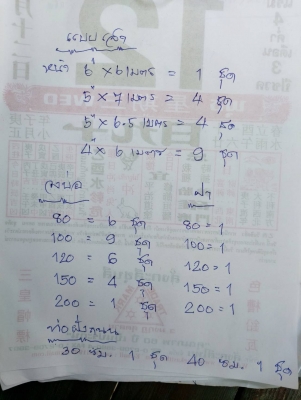 แบบเสา
หน้า 6" x 6 เมตร = 1 ชุด
5" x 7 เมตร = 4 ชุด
5" x 6.5 เมตร = 4 ชุด
4" x 6 เมตร = 9 ชุด
วงบ่อ ฝา
80 = 6 ชุด 80 = 1
100 = 9 ชุด 100 = 1
120 = 6 ชุด 120 = 1
150 = 4 ชุด 150 = 1
200 = 1 ชุด 200 = 1
ท่อ
30 ซม. 1 ชุด 40 ซม. 1 ชุด